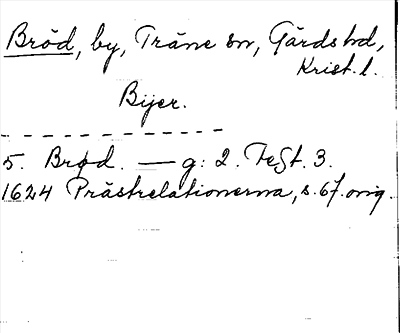 Bröd, by, Träne sn, Gärds hd,
Krist. l.
Bijer.
5. Brød. — g: 2. Fe§t. 3.
1624 Prästrelationerna, s. 67. orig.